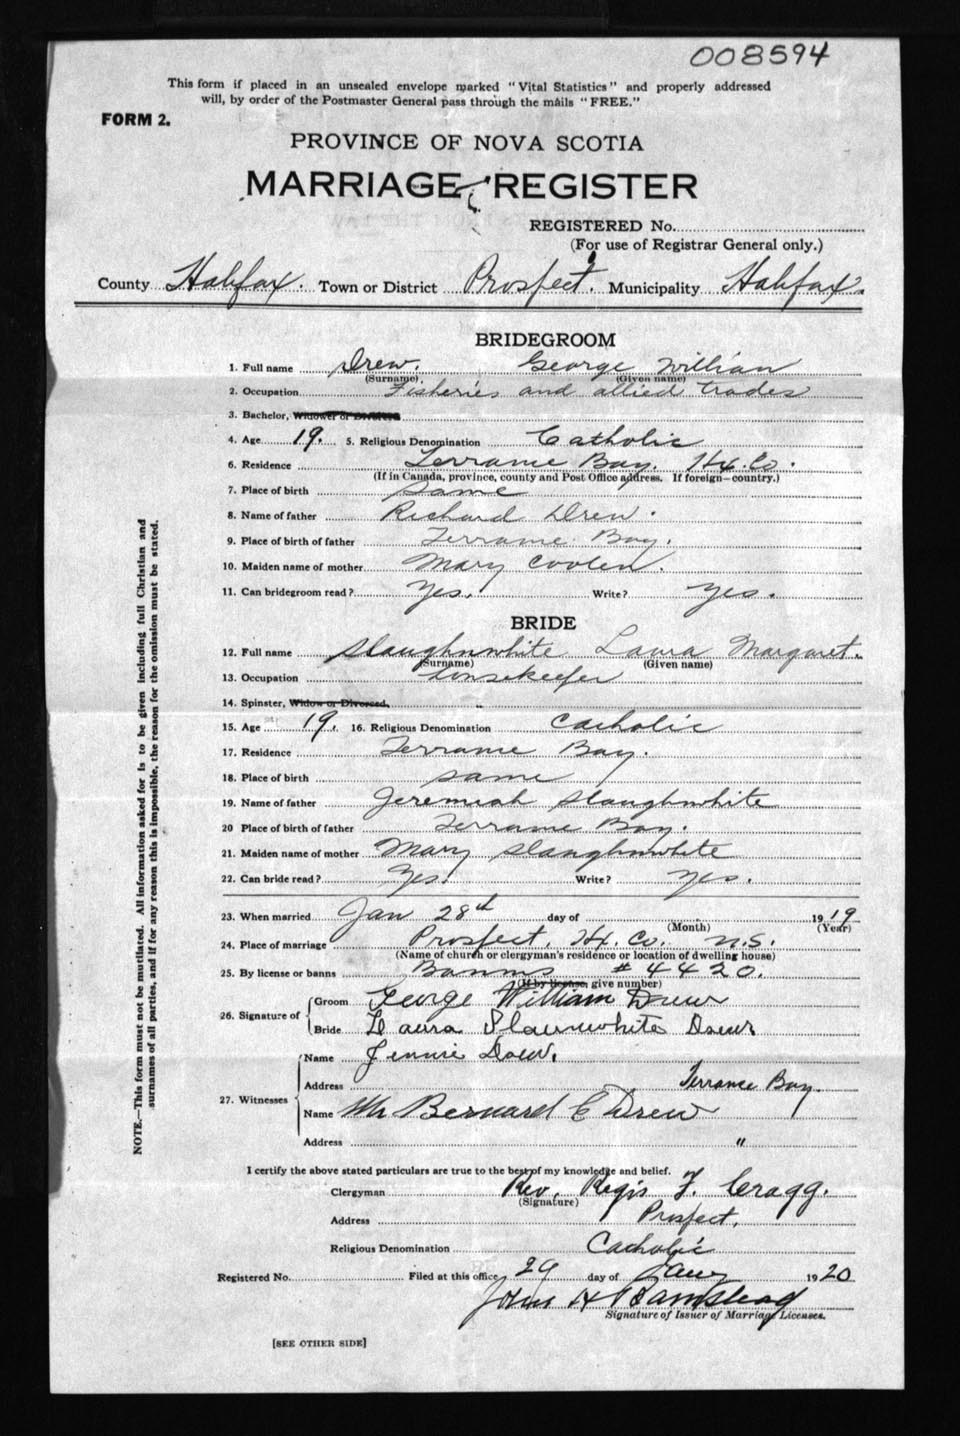 008594
This form if placed in an unsealed envelope marked "Vital Statistics" and properly addressed
will, by order of the Postmaster General pass through the mails "FREE."
FORM 2.
PROVINCE OF NOVA SCOTIA
MARRIAGE REGISTER
REGISTERED No.
(For use of Registrar General only.)
County Halifax. Town or District Prospect. Municipality Halifax.
BRIDEGROOM
1. Full name Drew. George William
(Surname) (Given name)
2. Occupation Fisheries and allied trades
3. Bachelor, Widower or Divorced
4. Age 19. 5. Religious Denomination Catholic
6. Residence Terrance Bay. Hx. Co.
(If in Canada, province, county and Post Office address. If foreign—country.)
7. Place of birth same
8. Name of father Richard Drew.
9. Place of birth of father Terrance Bay.
10. Maiden name of mother Mary Coolen.
11. Can bridegroom read? Yes. Write? Yes.
BRIDE
12. Full name Slaughnwhite Laura Margaret.
(Surname) (Given name)
13. Occupation housekeeper
14. Spinster, Widow or Divorced,
15. Age 19. 16. Religious Denomination Catholic
17. Residence Terrance Bay.
18. Place of birth same
19. Name of father Jeremiah Slaughnwhite
20 Place of birth of father Terrance Bay.
21. Maiden name of mother Mary Slaughnwhite
22. Can bride read? Yes. Write? Yes.
23. When married Jan 28th day of 1919
(Month) (Year)
24. Place of marriage Prospect, Hx. Co. N.S.
(Name of church or clergyman's residence or location of dwelling house)
25. By license or banns Banns #4420.
(If by license, give number)
26. Signature of Groom George William Drew
Bride Laura Slaunwhite Drew.
27. Witnesses Name Jennie Drew.
Address Terrance Bay.
Name Mr Bernard C Drew
Address "
I certify the above stated particulars are true to the best of my knowledge and belief.
Clergyman Rev. Regis F. Cragg.
(Signature)
Address Prospect.
Religious Denomination Catholic
Registered No. Filed at this office 29 day of Jany 1920
John H Barnstead
Signature of Issuer of Marriage Licenses.
[SEE OTHER SIDE]
NOTE.—This form must not be mutilated. All information asked for is to be given including full Christian and
surnames of all parties, and if for any reason this is impossible, the reason for the omission must be stated.